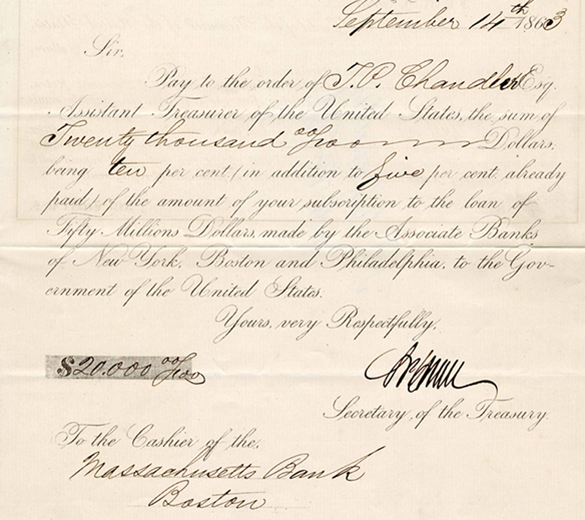 September 14th 1863
Sir.
Pay to the order of T. P. Chandler Esq.
Assistant Treasurer of the United States, the sum of
Twenty thousand 00/100 Dollars,
being ten per cent. (in addition to five per cent. already
paid) of the amount of your subscription to the loan of
Fifty Millions Dollars, made by the Associate Banks
of New York, Boston and Philadelphia, to the Gov-
ernment of the United States.
Yours, very Respectfully,
$20.000 00/100
Secretary of the Treasury.
To the Cashier of the,
Massachusetts Bank
Boston